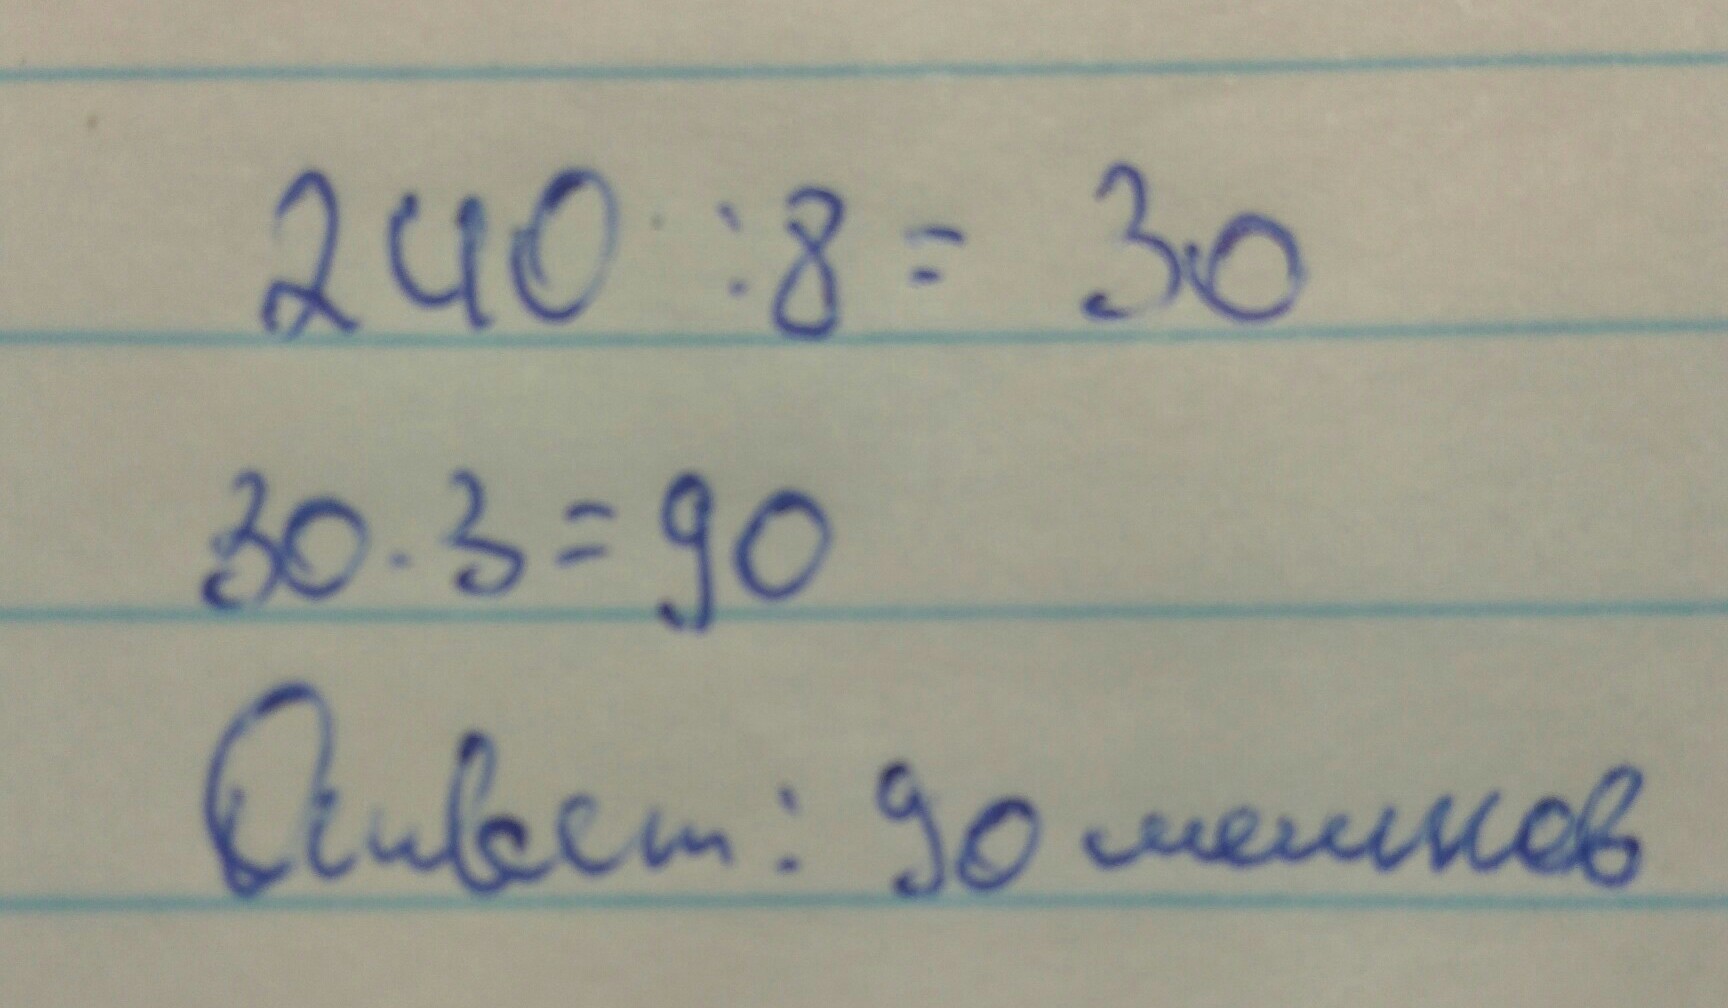 240 : 8 = 30
30 . 3 = 90
Ответ: 90 мешков